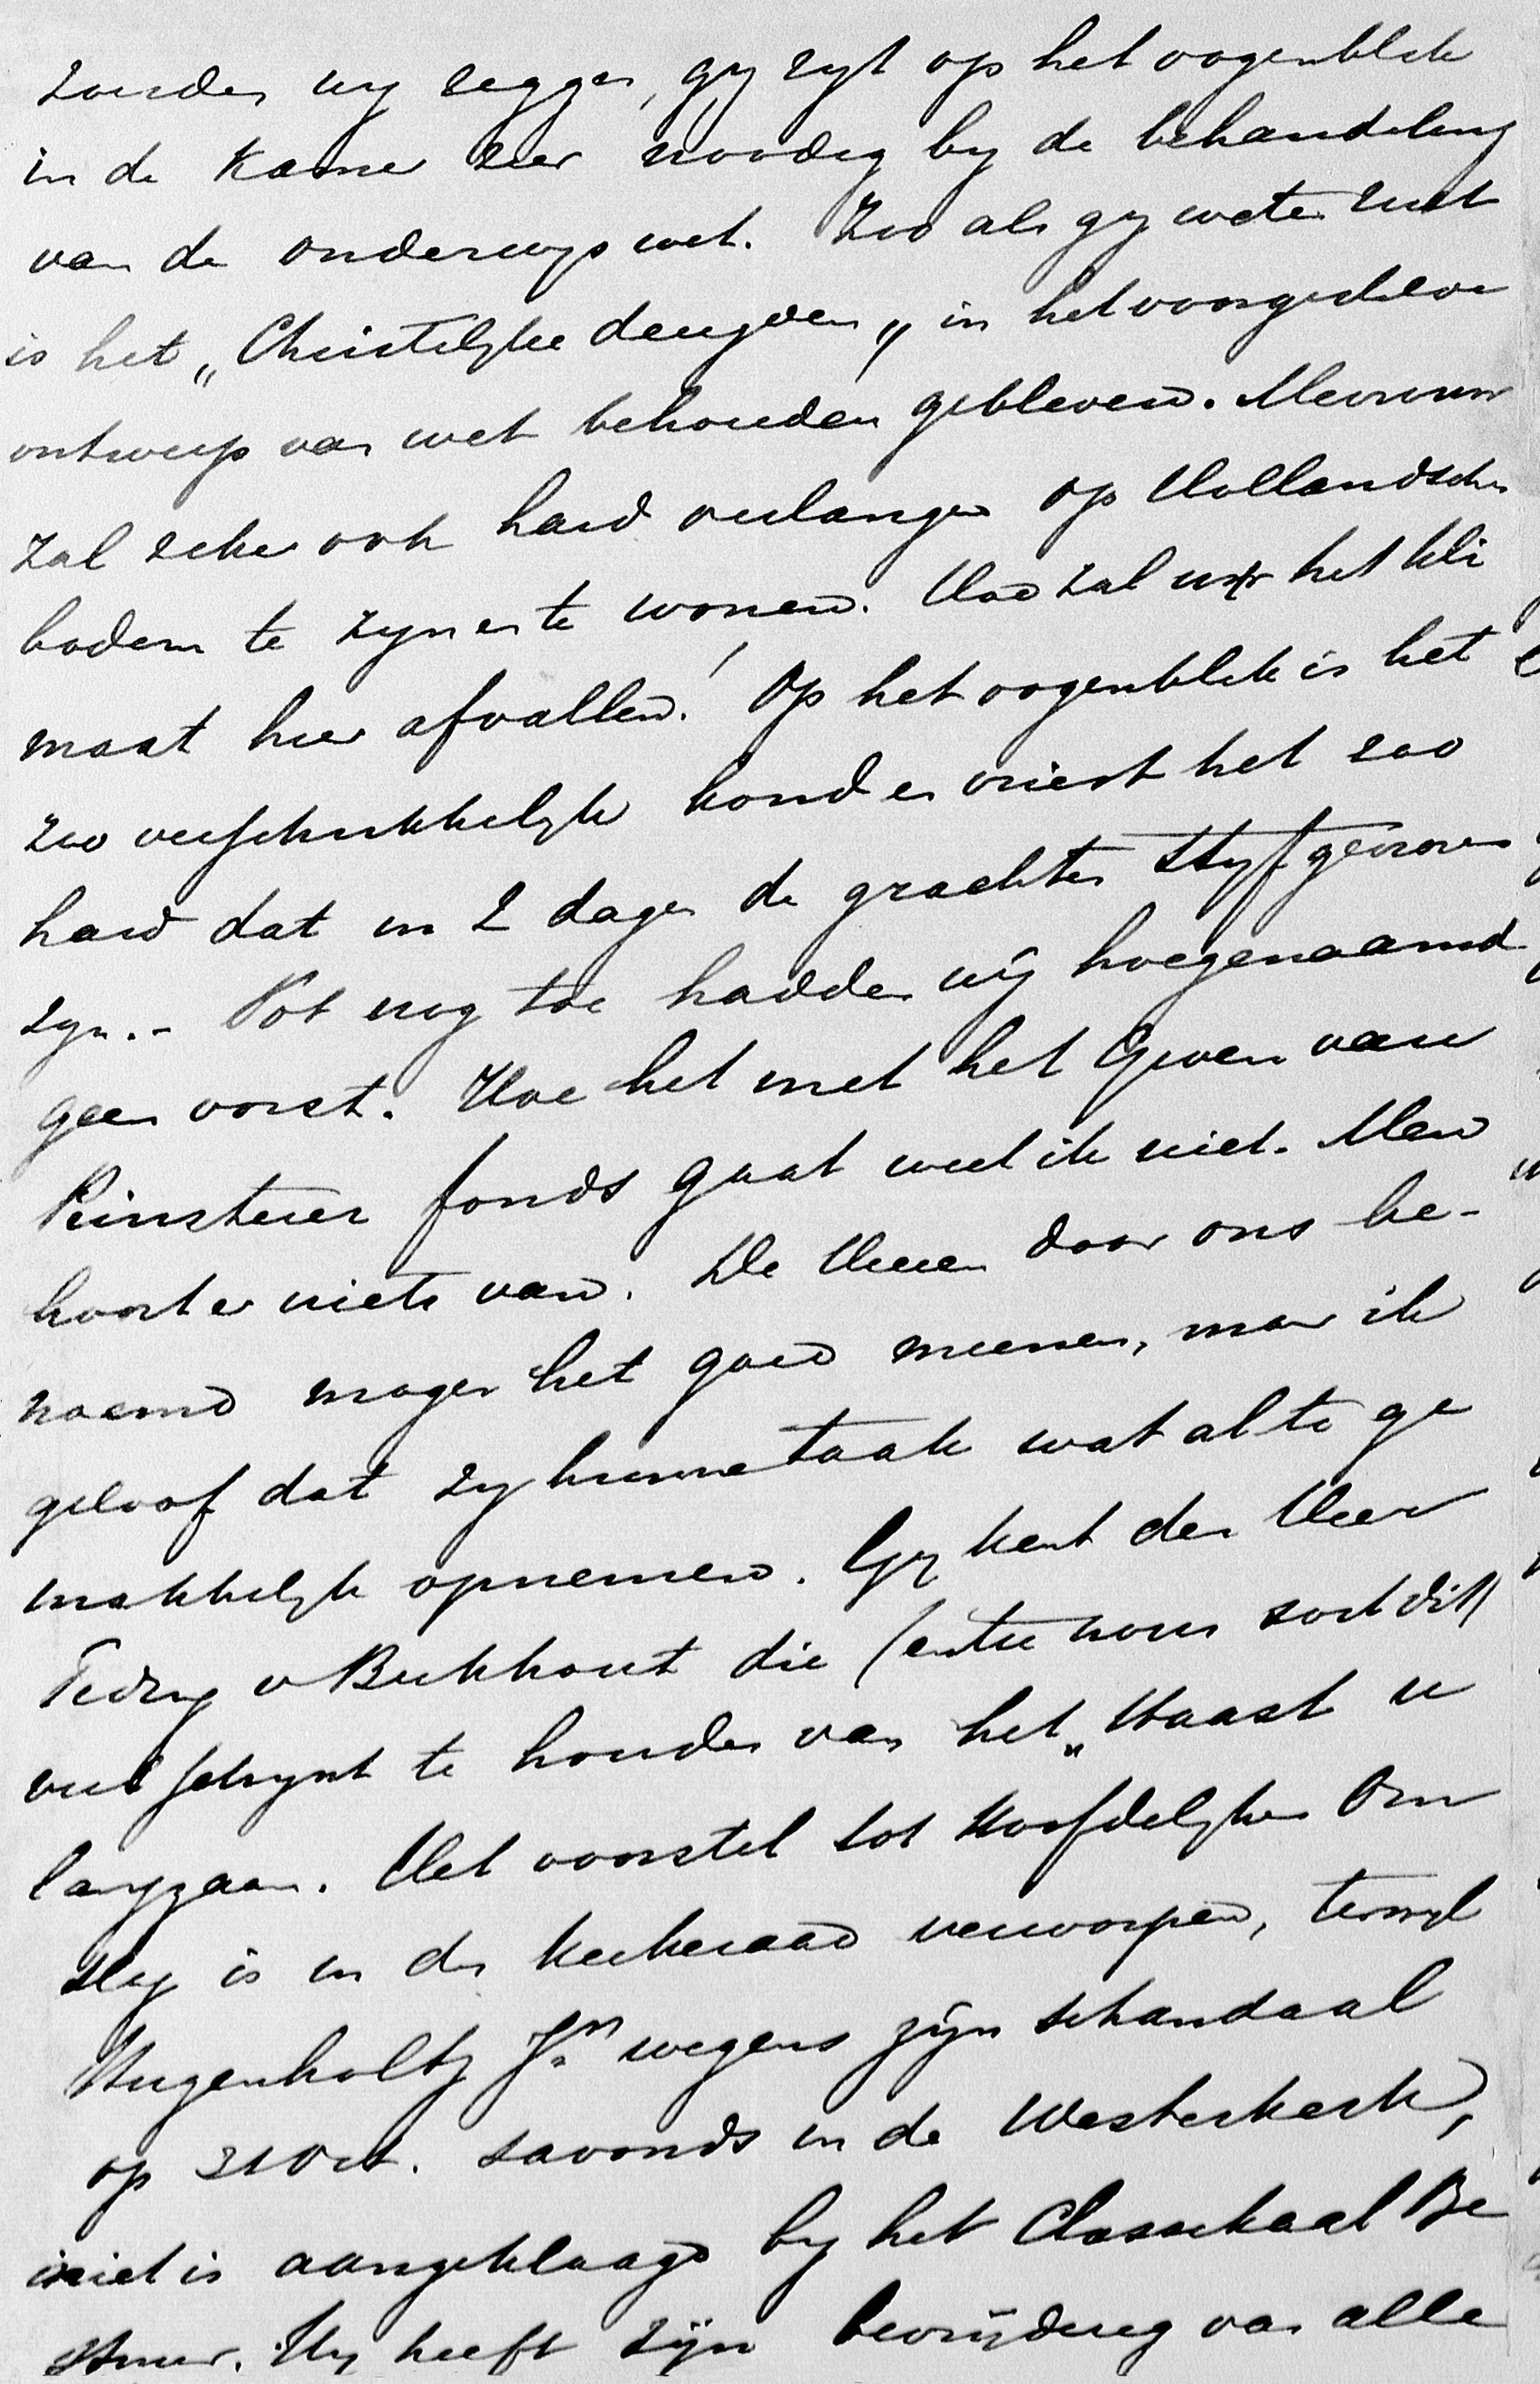 zouden wy zeggen, gy zyt op het oogenblik
in de Kamer zeer noodig by de behandeling
van de onderwys wet. Zoo als gy weten zult
is het „Christelyke deugden„ in het voorgestelde
ontwerp van wet behouden gebleven. Mevrouw
zal zeker ook hard verlangen op Hollandschen
bodem te zyn en te wonen. Hoe zal het kli
maat hier afvallen! Op het oogenblik is het
zoo verschrikkelyk koud en vriest het zoo
hard dat in 2 dagen de grachten styf gevroren
zyn. - Tot nog toe hadden wij hoegenaamd
geen vorst. Hoe het met het Groen van
Prinsterer fonds gaat weet ik niet. Men
hoort er niets van. De Heeren door ons be-
noemd mogen het goed meenen, maar ik
geloof dat zy hunne taak wat al te ge
makkelyk opnemen. Gy kent den Heer
Teding v Berkhout die (entre nous soit dit)
veel schynt te houden van het „Haast u
langzaam. Het voorstel tot Hoofdelyken Om
slag is in den Kerkeraad verworpen, terwyl
Hugenholtz Jn. wegens zijn schandaal
op 31 Oct. savonds in de Westerkerk,
niet is aangeklaagd by het Classikaal Be
stuur. Hy heeft zijn bevrijding van alle